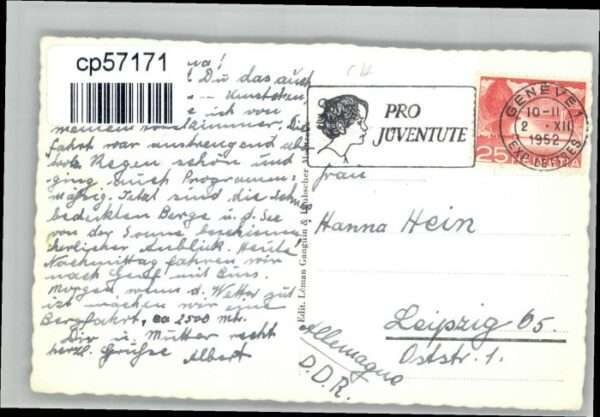 cp57171
Du das auch
ich von
meinem
fahrt war anstrengend aber
trotz Regen schön und
ging auch Programm-
mäßig. Jetzt sind die schnee
bedeckten Berge u. d. See
von der Sonne beschienen
herrlicher Anblick. Heute
Nachmittag fahren wir
nach Genf mit Bus.
Morgen wenn d. Wetter gut
ist machen wir eine
Bergfahrt, ca 2500 mtr.
Dir u. Mutter recht
herzl. Grüße Albert
Edit. Léman Ganguin & Laubscher
PRO
JUVENTUTE
GENÈVE 1
10-11
2 XII
1952
EXP. LETTRES
25
Frau
Hanna Hein
Leipzig O5.
Oststr. 1.
Allemagne
D.D.R.